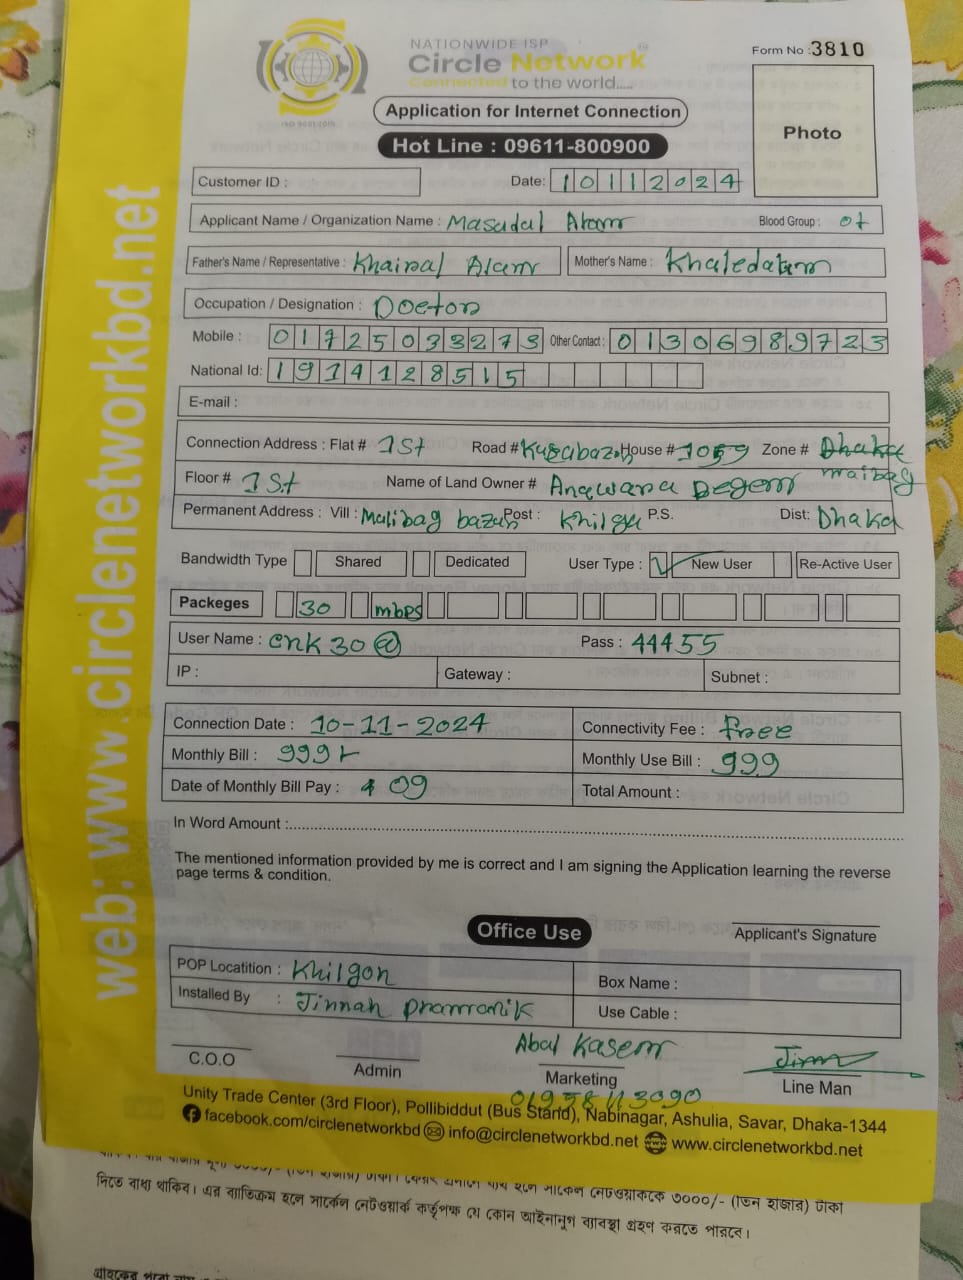 NATIONWIDE ISP
Circle Network
Connected to the world.....
ISO 9001 CERTI.
Form No : 3810
Application for Internet Connection
Photo
Hot Line : 09611-800900
Customer ID :
Date: 10112024
Applicant Name / Organization Name : Masudul Alam Blood Group : o+
Father's Name / Representative : Khairul Alam Mother's Name : Khaledatun
Occupation / Designation : Doctor
Mobile : 01725033273 Other Contact : 01306989723
National Id: 1914128515
E-mail :
Connection Address : Flat # 1st Road # House # 1059 Zone # Dhaka
Floor # 1st Name of Land Owner # Anawara Begom malibag
Permanent Address : Vill : Malibag bazar Post : Khilga P.S. Dist: Dhaka
Bandwidth Type Shared Dedicated User Type : ✓ New User Re-Active User
Packeges 30 mbps
User Name : cnk30@ Pass : 44455
IP : Gateway : Subnet :
Connection Date : 10-11-2024 Connectivity Fee : free
Monthly Bill : 999 Monthly Use Bill : 999
Date of Monthly Bill Pay : 09 Total Amount :
In Word Amount :
The mentioned information provided by me is correct and I am signing the Application learning the reverse
page terms & condition.
Office Use
Applicant's Signature
POP Locatition : Khilgon Box Name :
Installed By : Jinnah Pramanik Use Cable :
Abul Kasem
C.O.O Admin Marketing Line Man
01958113090
Unity Trade Center (3rd Floor), Pollibiddut (Bus Stand), Nabinagar, Ashulia, Savar, Dhaka-1344
facebook.com/circlenetworkbd info@circlenetworkbd.net www.circlenetworkbd.net
web: www.circlenetworkbd.net
দিতে বাধ্য থাকিব। এর ব্যাতিক্রম হলে সার্কেল নেটওয়ার্ক কর্তৃপক্ষ যে কোন আইনানুগ ব্যাবস্থা গ্রহণ করতে পারবে।